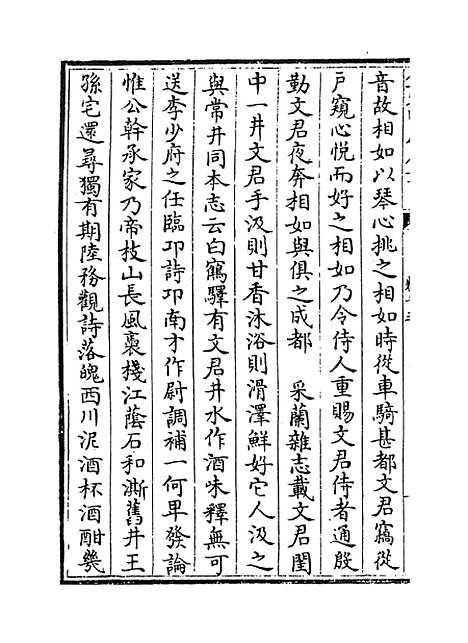 音故相如以琴心挑之相如時從車騎甚都文君竊從
戸窺心悦而好之相如乃令侍人重賜文君侍者通殷
勤文君夜奔相如與俱之成都　采蘭雜志載文君閨
中一井文君手汲則甘香沐浴則滑澤鮮好它人汲之
與常井同本志云白鶴驛有文君井水作酒味釋無可
送李少府之任臨卭詩卭南才作尉調補一何早發論
惟公幹承家乃帝枝山長風裛棧江蔭石和澌舊井王
孫宅還尋獨有期陸務觀詩落魄西川泥酒杯酒酣幾